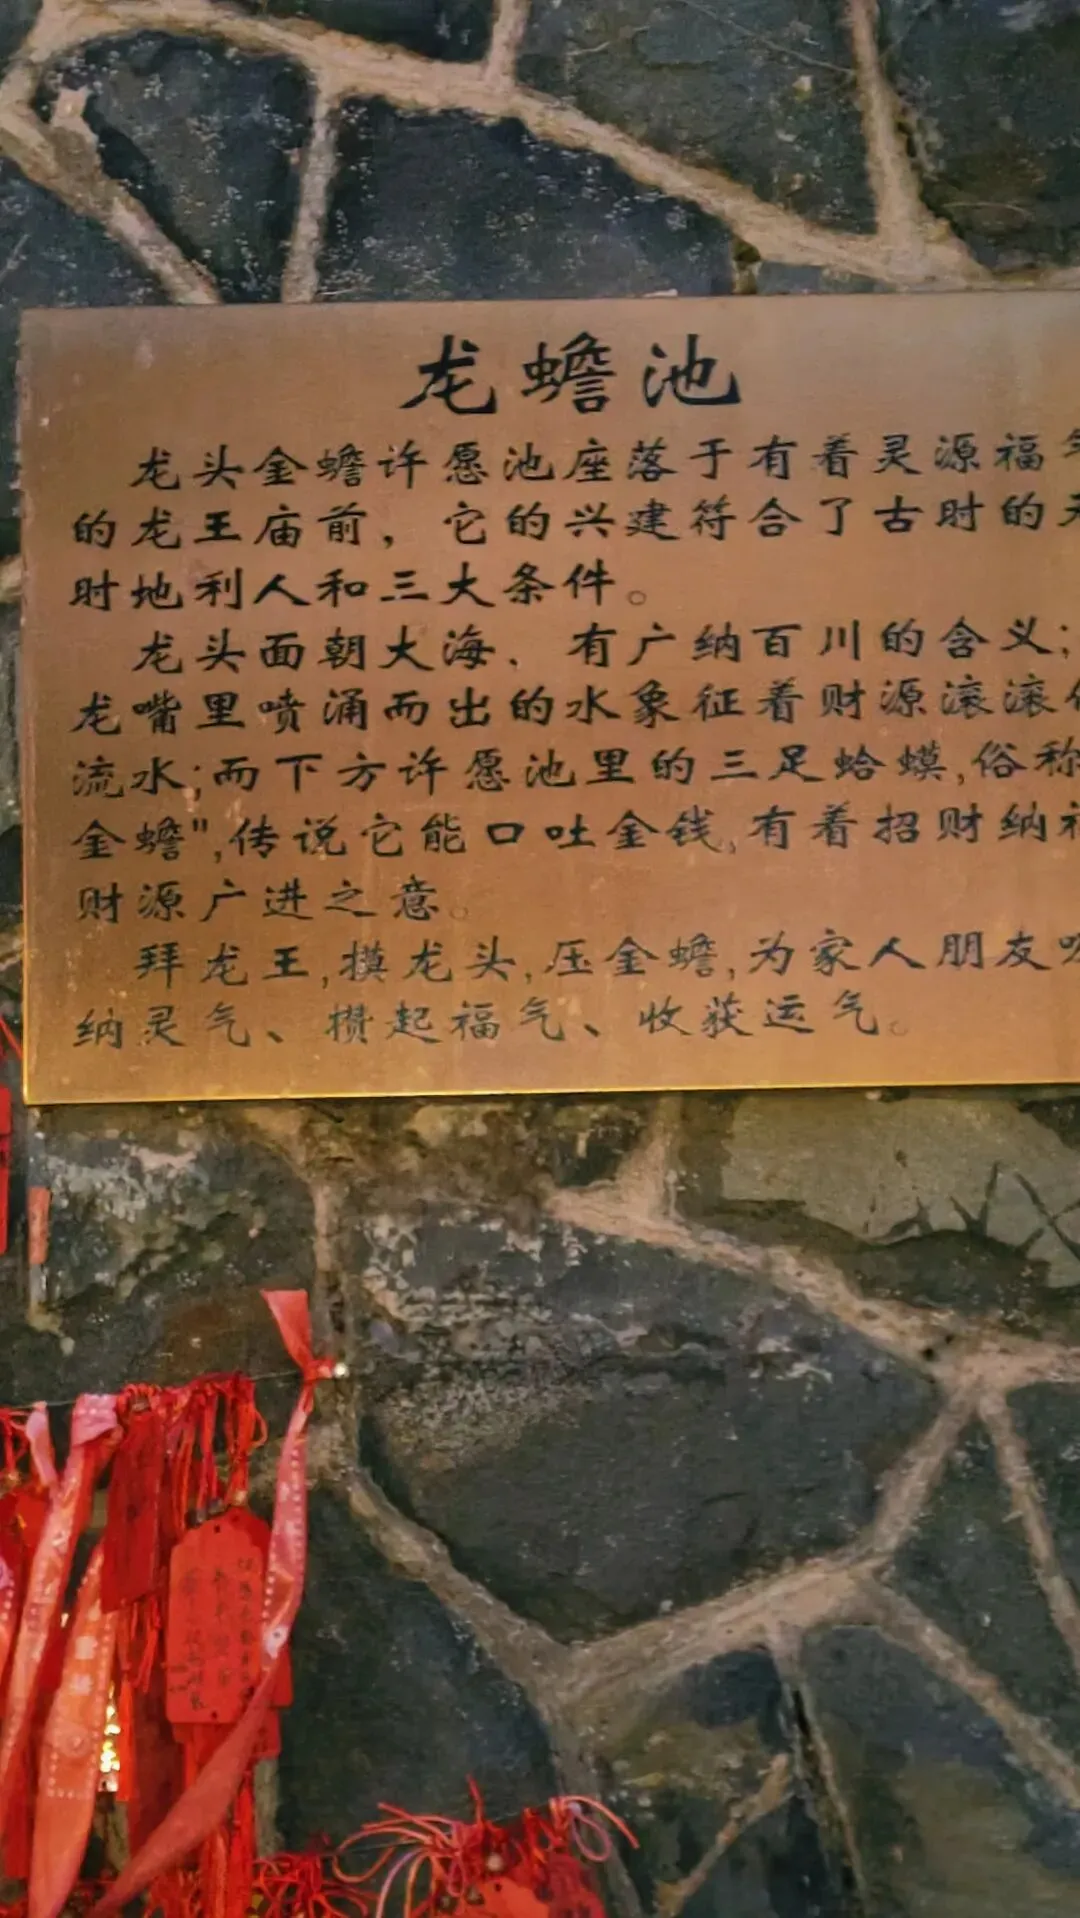 龙蟾池
龙头金蟾许愿池座落于有着灵源福
的龙王庙前，它的兴建符合了古时的天
时地利人和三大条件。
龙头面朝大海、有广纳百川的含义；
龙嘴里喷涌而出的水象征着财源滚滚
流水；而下方许愿池里的三足蛤蟆,俗称
金蟾",传说它能口吐金钱,有着招财纳
财源广进之意。
拜龙王,摸龙头,压金蟾,为家人朋友
纳灵气、攒起福气、收获运气。